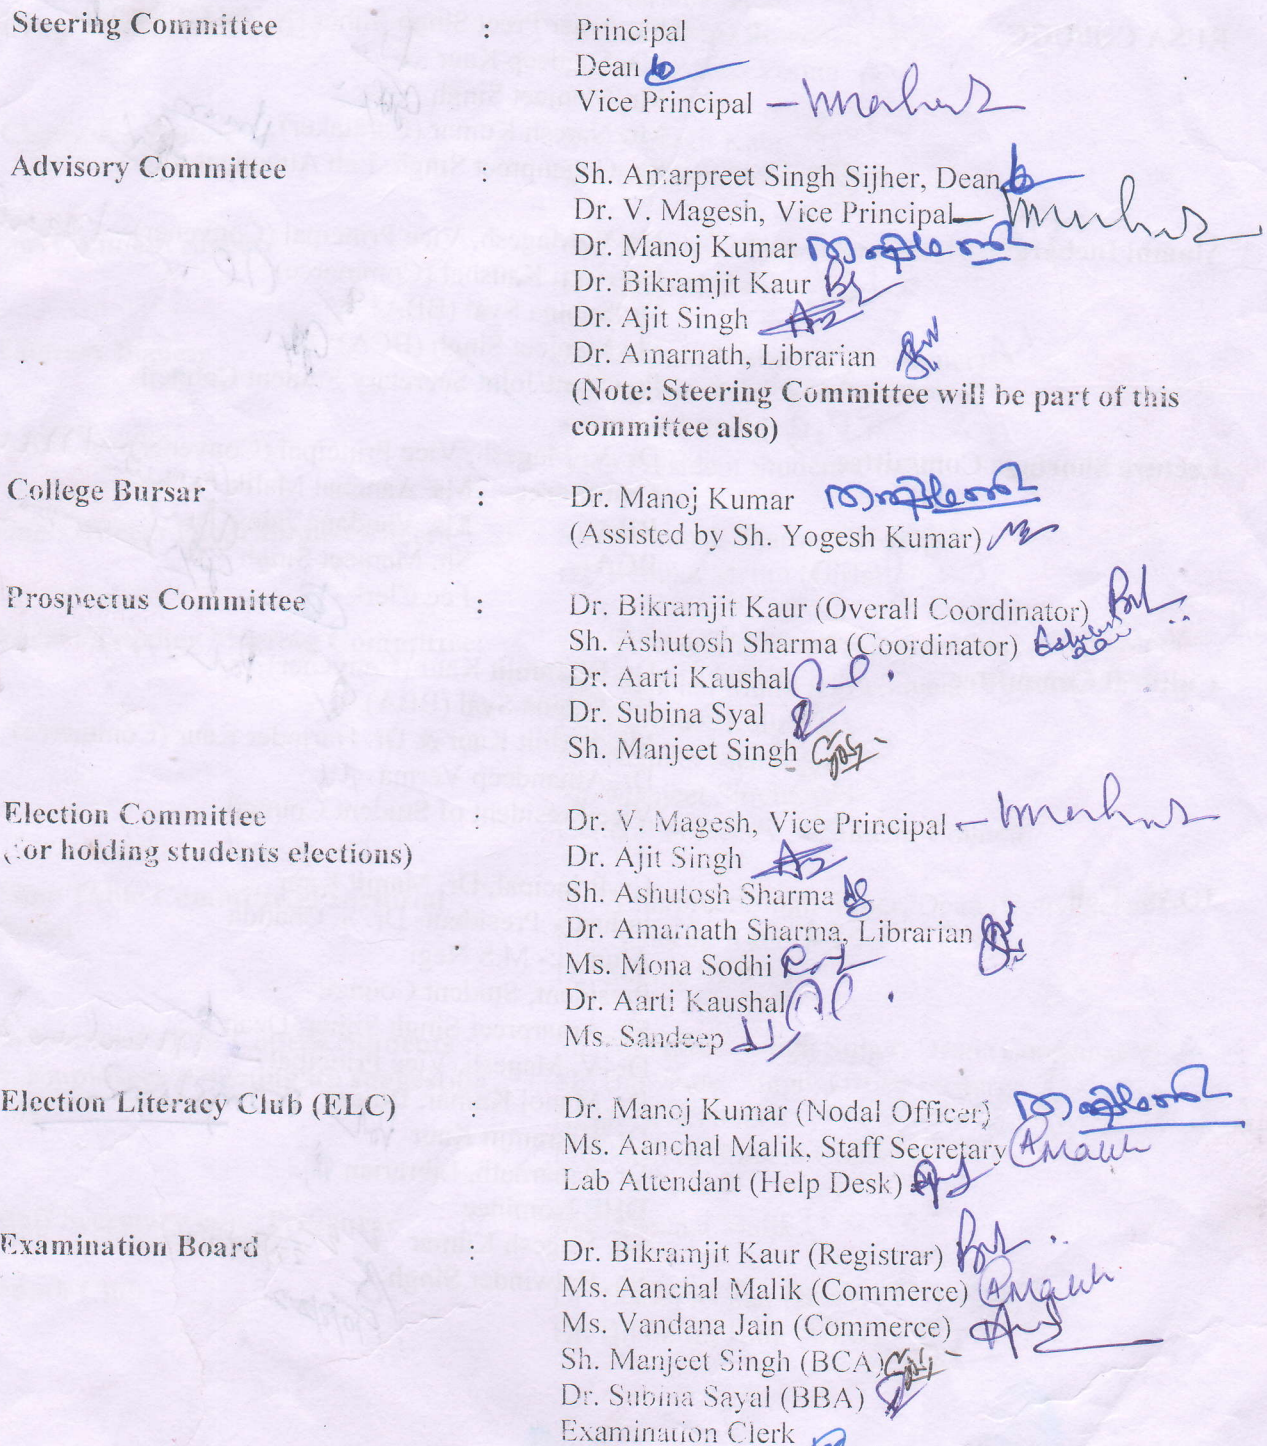 Steering Committee : Principal
Dean
Vice Principal
Advisory Committee : Sh. Amarpreet Singh Sijher, Dean
Dr. V. Magesh, Vice Principal
Dr. Manoj Kumar
Dr. Bikramjit Kaur
Dr. Ajit Singh
Dr. Amarnath, Librarian
(Note: Steering Committee will be part of this
committee also)
College Bursar : Dr. Manoj Kumar
(Assisted by Sh. Yogesh Kumar)
Prospectus Committee : Dr. Bikramjit Kaur (Overall Coordinator)
Sh. Ashutosh Sharma (Coordinator)
Dr. Aarti Kaushal
Dr. Subina Syal
Sh. Manjeet Singh
Election Committee : Dr. V. Magesh, Vice Principal
(for holding students elections) Dr. Ajit Singh
Sh. Ashutosh Sharma
Dr. Amarnath Sharma, Librarian
Ms. Mona Sodhi
Dr. Aarti Kaushal
Ms. Sandeep
Election Literacy Club (ELC) : Dr. Manoj Kumar (Nodal Officer)
Ms. Aanchal Malik, Staff Secretary
Lab Attendant (Help Desk)
Examination Board : Dr. Bikramjit Kaur (Registrar)
Ms. Aanchal Malik (Commerce)
Ms. Vandana Jain (Commerce)
Sh. Manjeet Singh (BCA)
Dr. Subina Sayal (BBA)
Examination Clerk